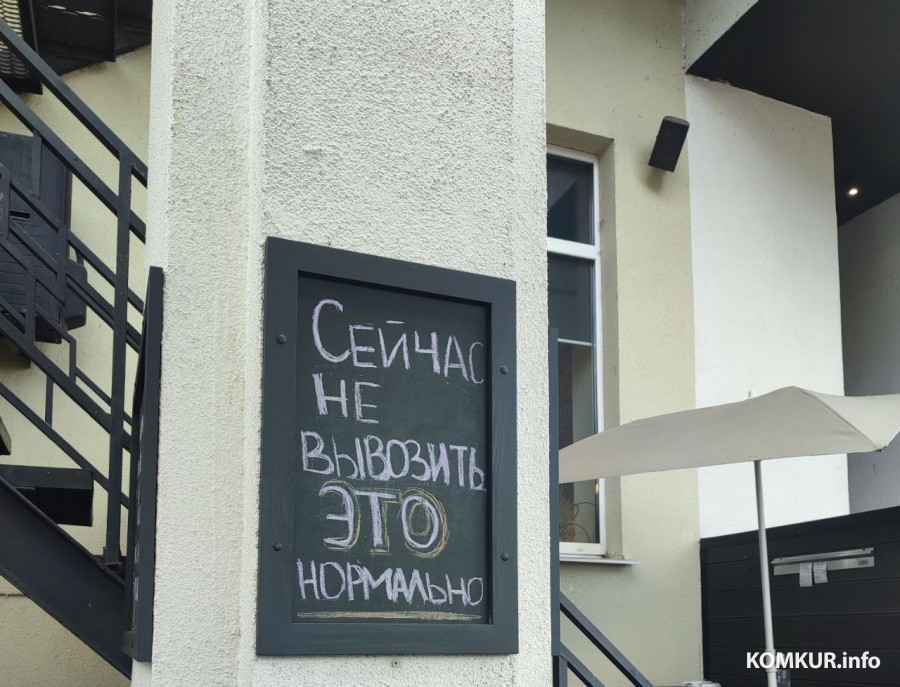 СЕЙЧАС
НЕ
ВЫВОЗИТЬ
ЭТО
НОРМАЛЬНО
KOMKUR.info